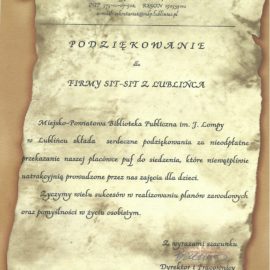 PODZIĘKOWANIE
dla
FIRMY SIT-SIT Z LUBLIŃCA
Miejsko-Powiatowa Biblioteka Publiczna im. J. Lompy
w Lublińcu składa serdeczne podziękowania za nieodpłatne
przekazanie naszej placówce puf do siedzenia, które niewątpliwie
uatrakcyjnią prowadzone przez nas zajęcia dla dzieci.
Życzymy wielu sukcesów w realizowaniu planów zawodowych
oraz pomyślności w życiu osobistym.
Z wyrazami szacunku
Dyrektor i Pracownicy